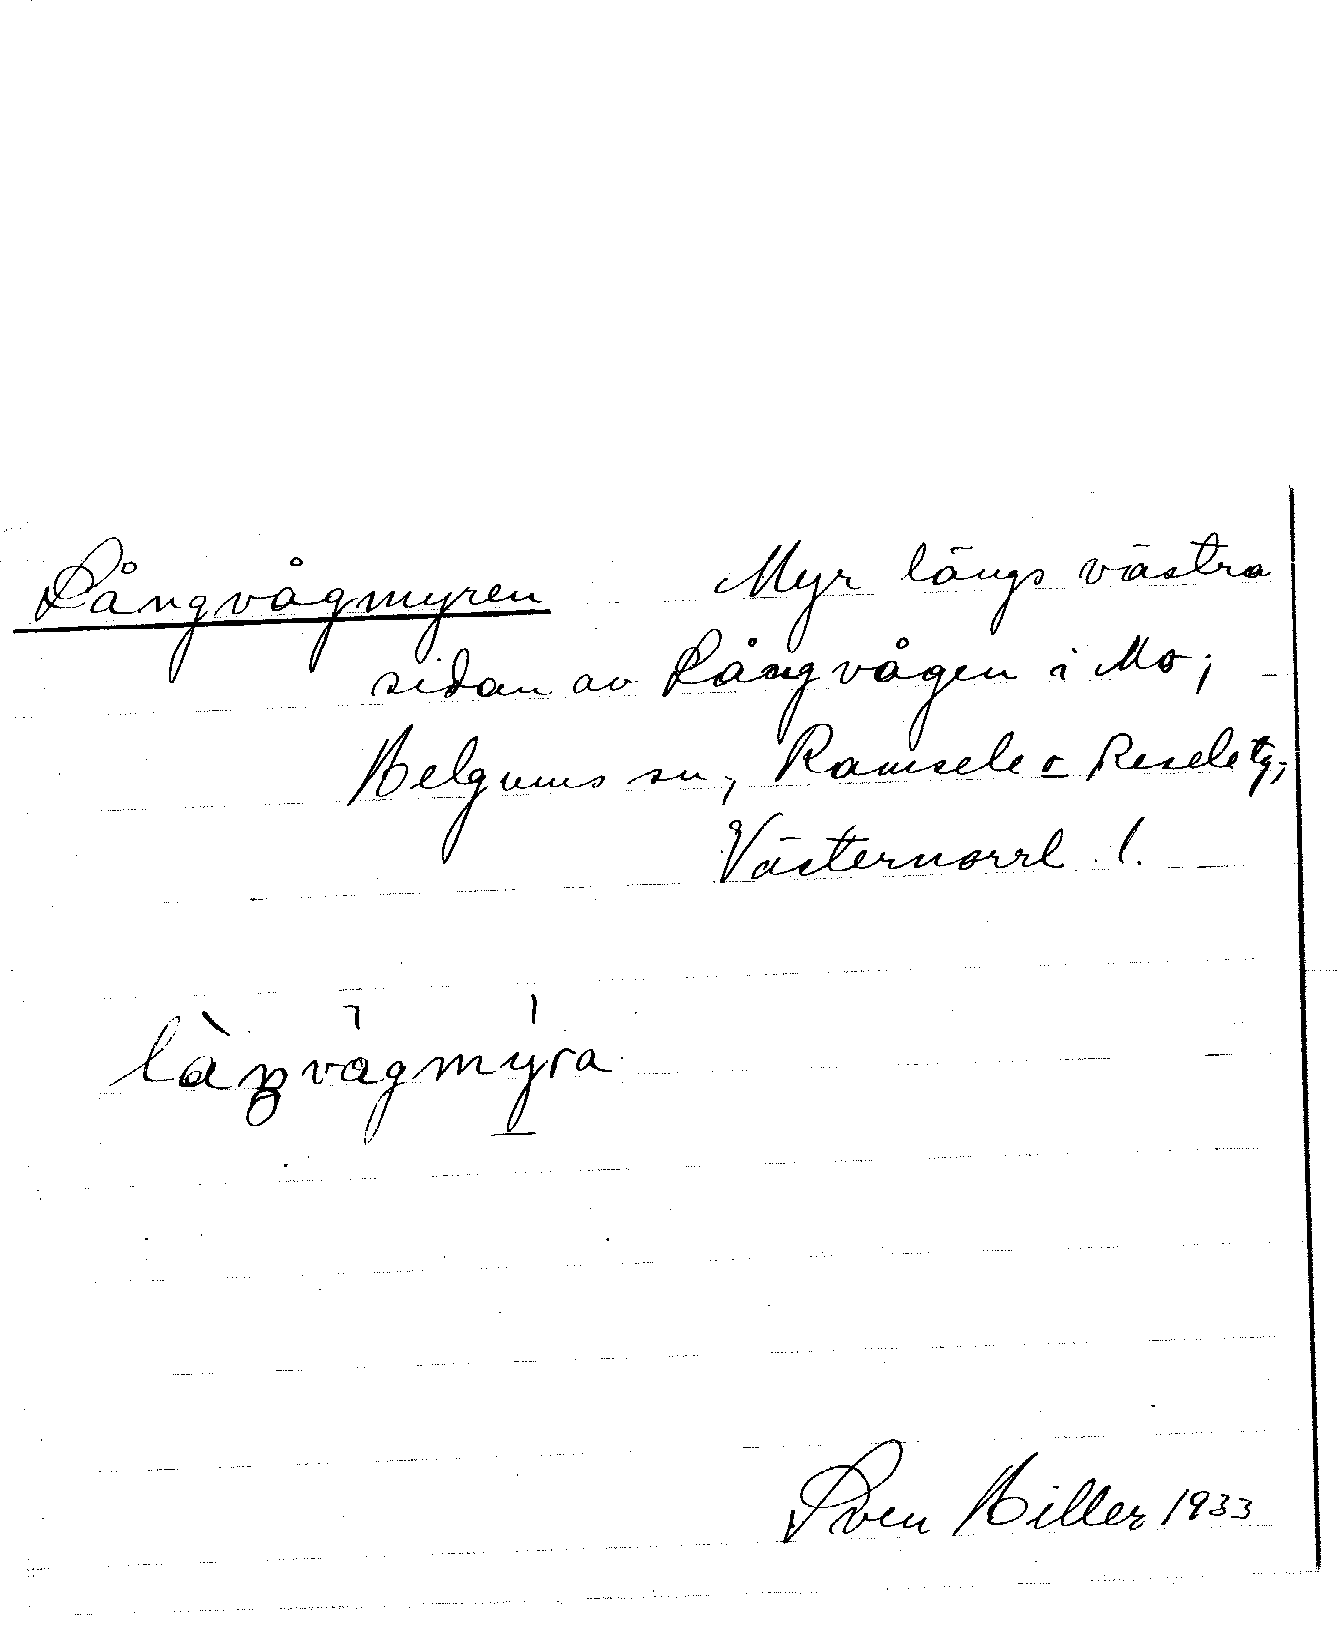 Långvågmyren Myr längs västra
sidan av Långvågen i Mo;
Helgums sn, Ramsele o Resele tg,
Västernorrl l.
làŋvågmýra
Sven Hiller 1933